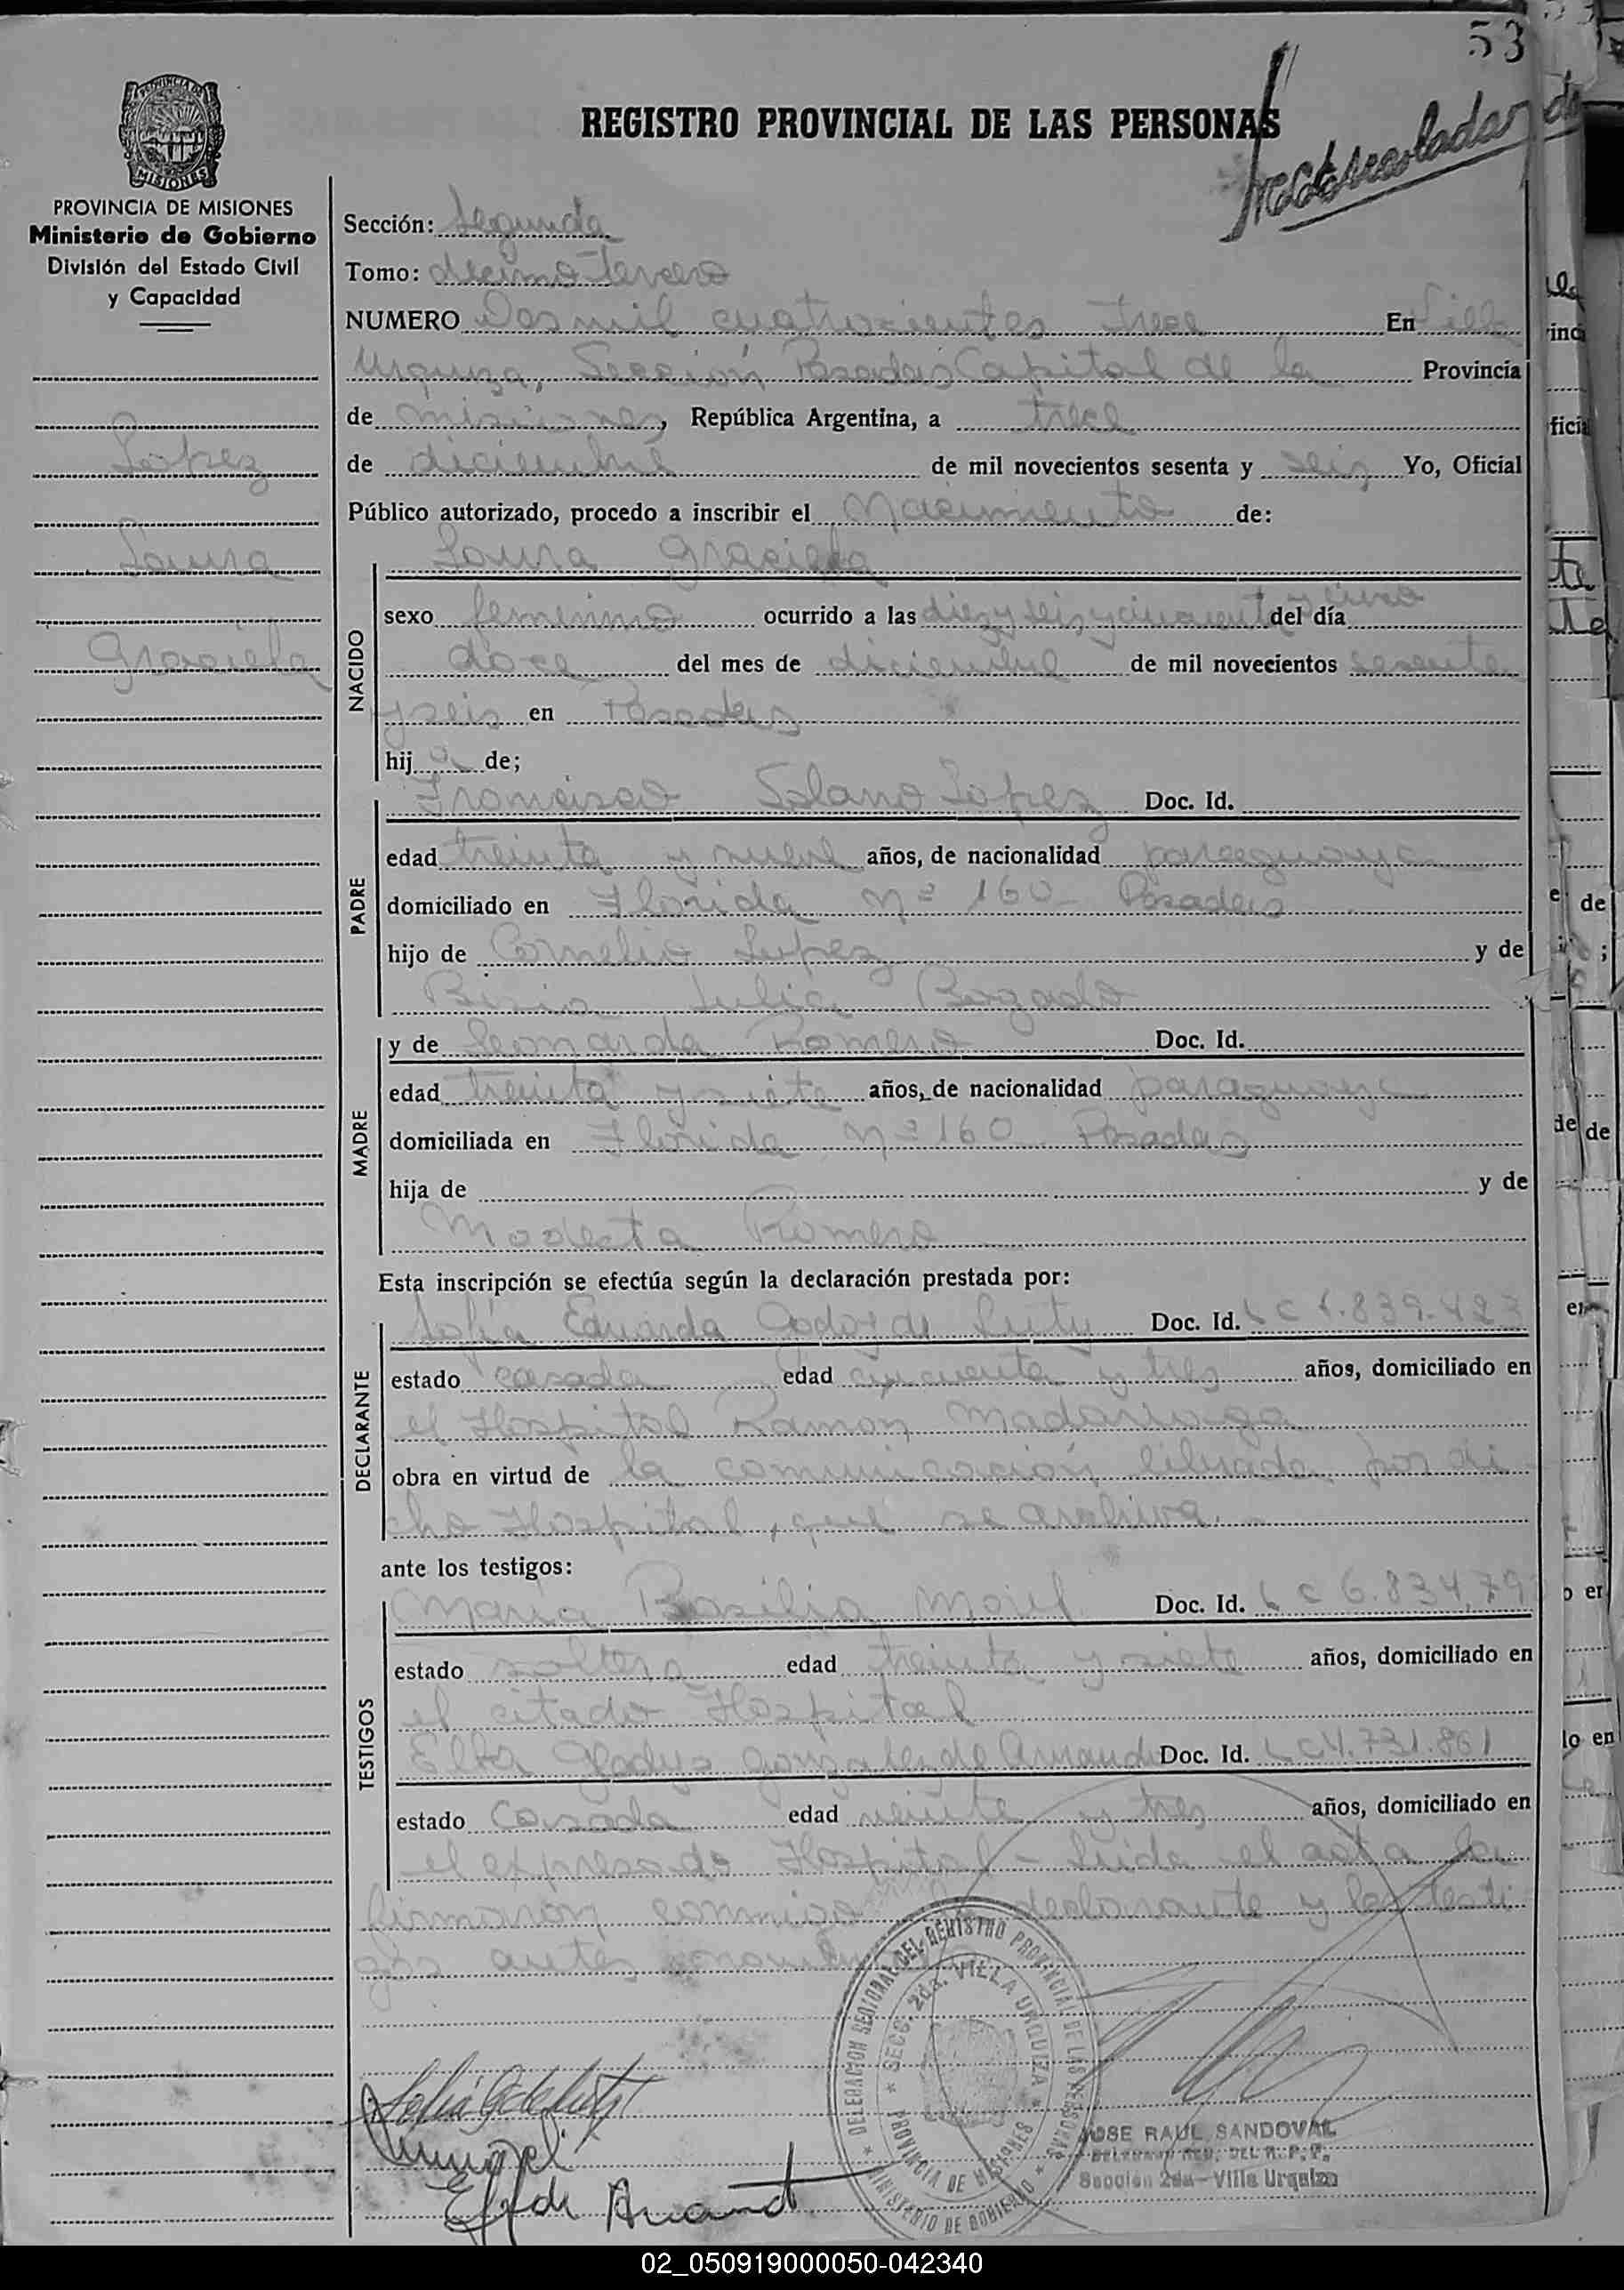 53
REGISTRO PROVINCIAL DE LAS PERSONAS
PROVINCIA DE
MISIONES
PROVINCIA DE MISIONES
Ministerio de Gobierno
División del Estado Civil
y Capacidad
Lopez
Laura
Graciela
Sección: Segunda
Tomo: decimo tercero
NUMERO Dos mil cuatrocientos trece En Villa
Urquiza, Sección Posadas Capital de la Provincia
de misiones, República Argentina, a trece
de diciembre de mil novecientos sesenta y seis Yo, Oficial
Público autorizado, procedo a inscribir el Nacimiento de:
Laura Graciela
NACIDO
sexo femenino ocurrido a las diez y seis y cincuenta y cinco del día
doce del mes de diciembre de mil novecientos sesenta
y seis en Posadas
hija de;
Francisco Solano Lopez Doc. Id.
PADRE
edad treinta y nueve años, de nacionalidad paraguaya
domiciliado en Florida Nº 160 - Posadas
hijo de Cornelio Lopez y de
Julia Bogado
MADRE
y de Leonarda Romero Doc. Id.
edad treinta y siete años, de nacionalidad paraguaya
domiciliada en Florida Nº 160 Posadas
hija de y de
Modesta Romero
Esta inscripción se efectúa según la declaración prestada por:
DECLARANTE
Sofía Eduarda Godoy de Doc. Id. L C 839.423
estado casada edad cincuenta y tres años, domiciliado en
el Hospital Ramón Madariaga
obra en virtud de la comunicación librada por di
cho Hospital, que se archiva.-
ante los testigos:
TESTIGOS
María Basilia Morel Doc. Id. L C 6.834.79
estado soltera edad treinta y siete años, domiciliado en
el citado Hospital
Elba Gladys Gonzalez de Armand Doc. Id. L C 4.731.861
estado Casada edad veinte y tres años, domiciliado en
el expresado Hospital - Leida el acta la
firmaron conmigo declarante y los testi
gos antes
DELEGACION REGIONAL DEL REGISTRO PROVINCIAL DE LAS PERSONAS
MINISTERIO DE GOBIERNO
SECC. 2da. VILLA URQUIZA
PROVINCIA DE MISIONES
JOSE RAUL SANDOVAL
DELEGADO REG. DEL R. P. P.
Sección 2da - Villa Urquiza
02_050919000050-042340